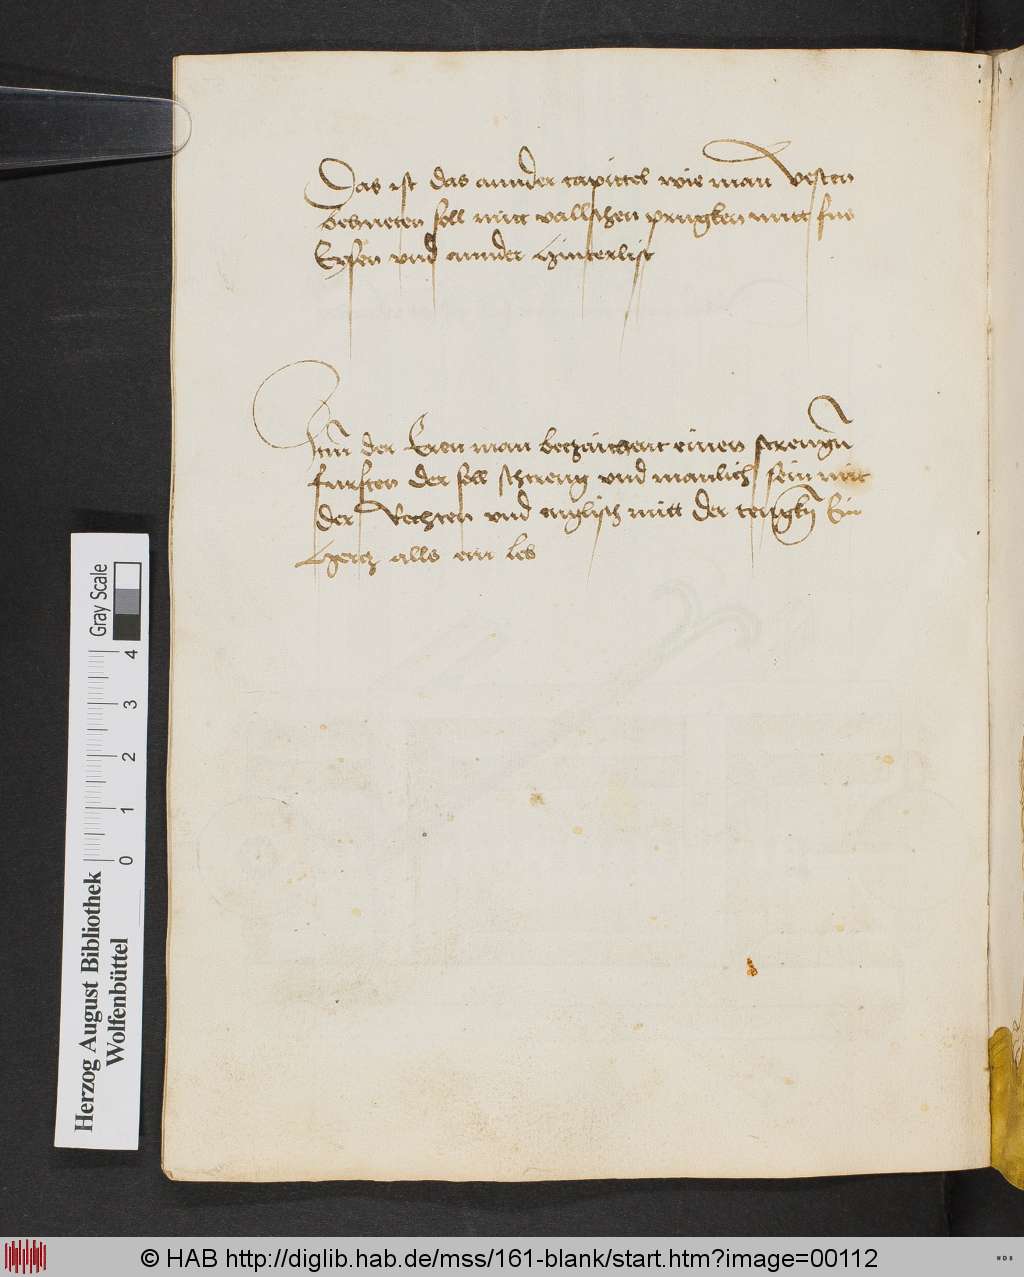 Das ist das annder capittel wie man Vesten
behueten soll mitt vallschen prugken mitt fus
Eysen vnd annder Hinterlist
Item der Eren man betzaichent einen strengen
fursten der soll schtreng vnd manlich sein mit
der Rechten vnd englisch mitt der tengkn Ein
Hertz alls ein leb
Herzog August Bibliothek
Wolfenbüttel
Gray Scale
0 1 2 3 4
© HAB http://diglib.hab.de/mss/161-blank/start.htm?image=00112